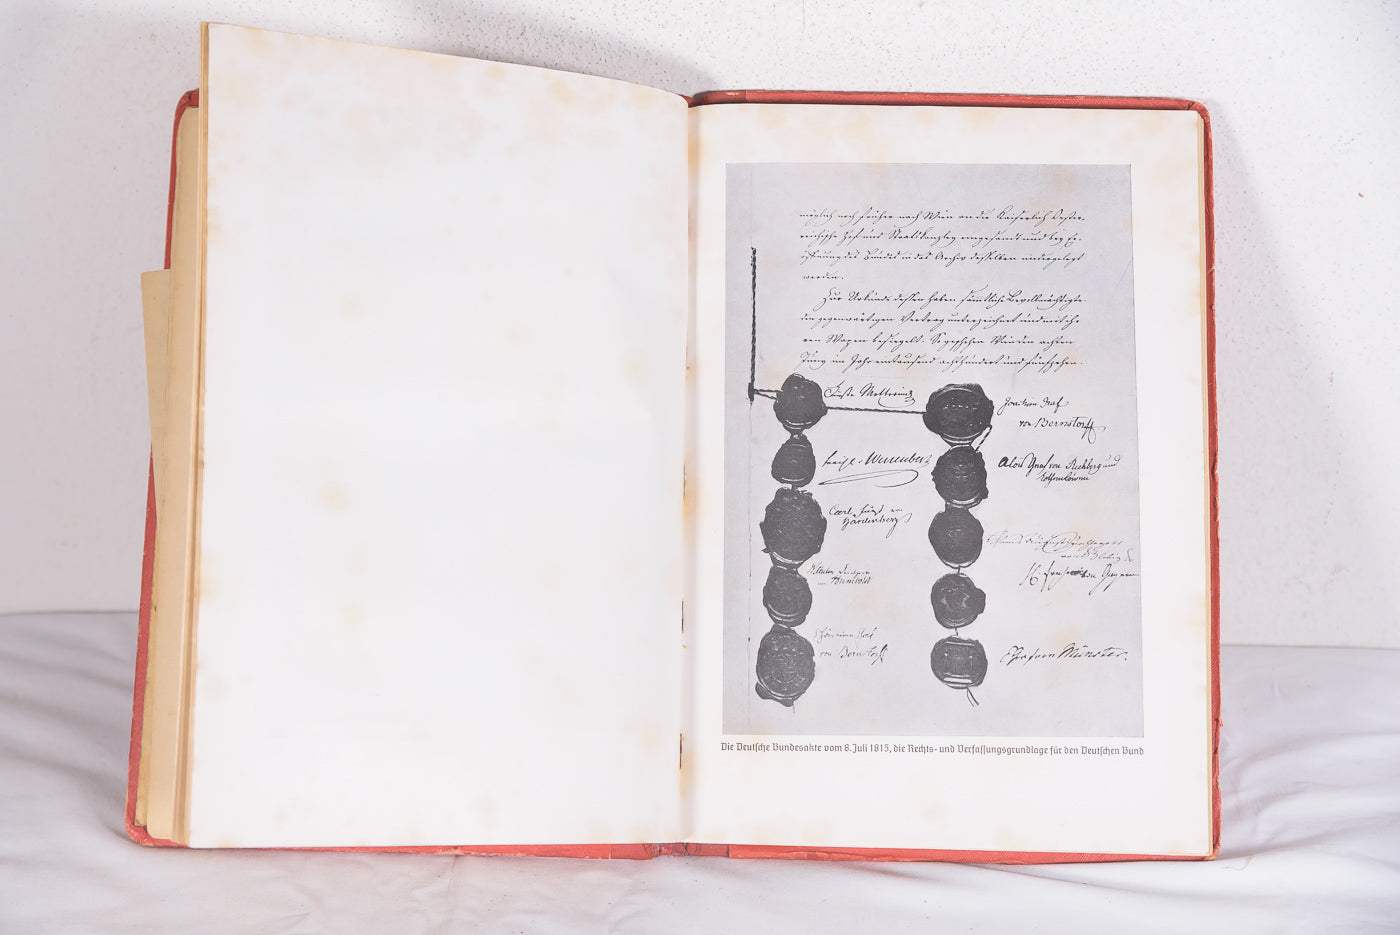 möglich noch früher nach Wien an die Kaiserlich Oester-
reichische Hof und Staatskanzley eingesandt und bey Er-
öffnung des Bundes in das Archiv desselben niedergelegt
werden.
Zur Urkunde dessen haben sämtliche Bevollmächtigte
den gegenwärtigen Vertrag unterzeichnet und mit ih-
ren Wapen besiegelt. So geschehen Wien den achten
Juny im Jahr eintausend achthundert und fünfzehn.
Fürst v. Metternich
Joachim Graf
von Bernstorff
Freih. v. Wessenberg
Alois Graf von Rechberg und
Rothenlöwen
Carl Fürst von
Hardenberg
Hs Ernst von Gagern
Wilhelm Freiherr
von Humboldt
Christian Graf
von Bernstorff
Graf von Münster.
Die Deutsche Bundesakte vom 8. Juli 1815, die Rechts- und Verfassungsgrundlage für den Deutschen Bund